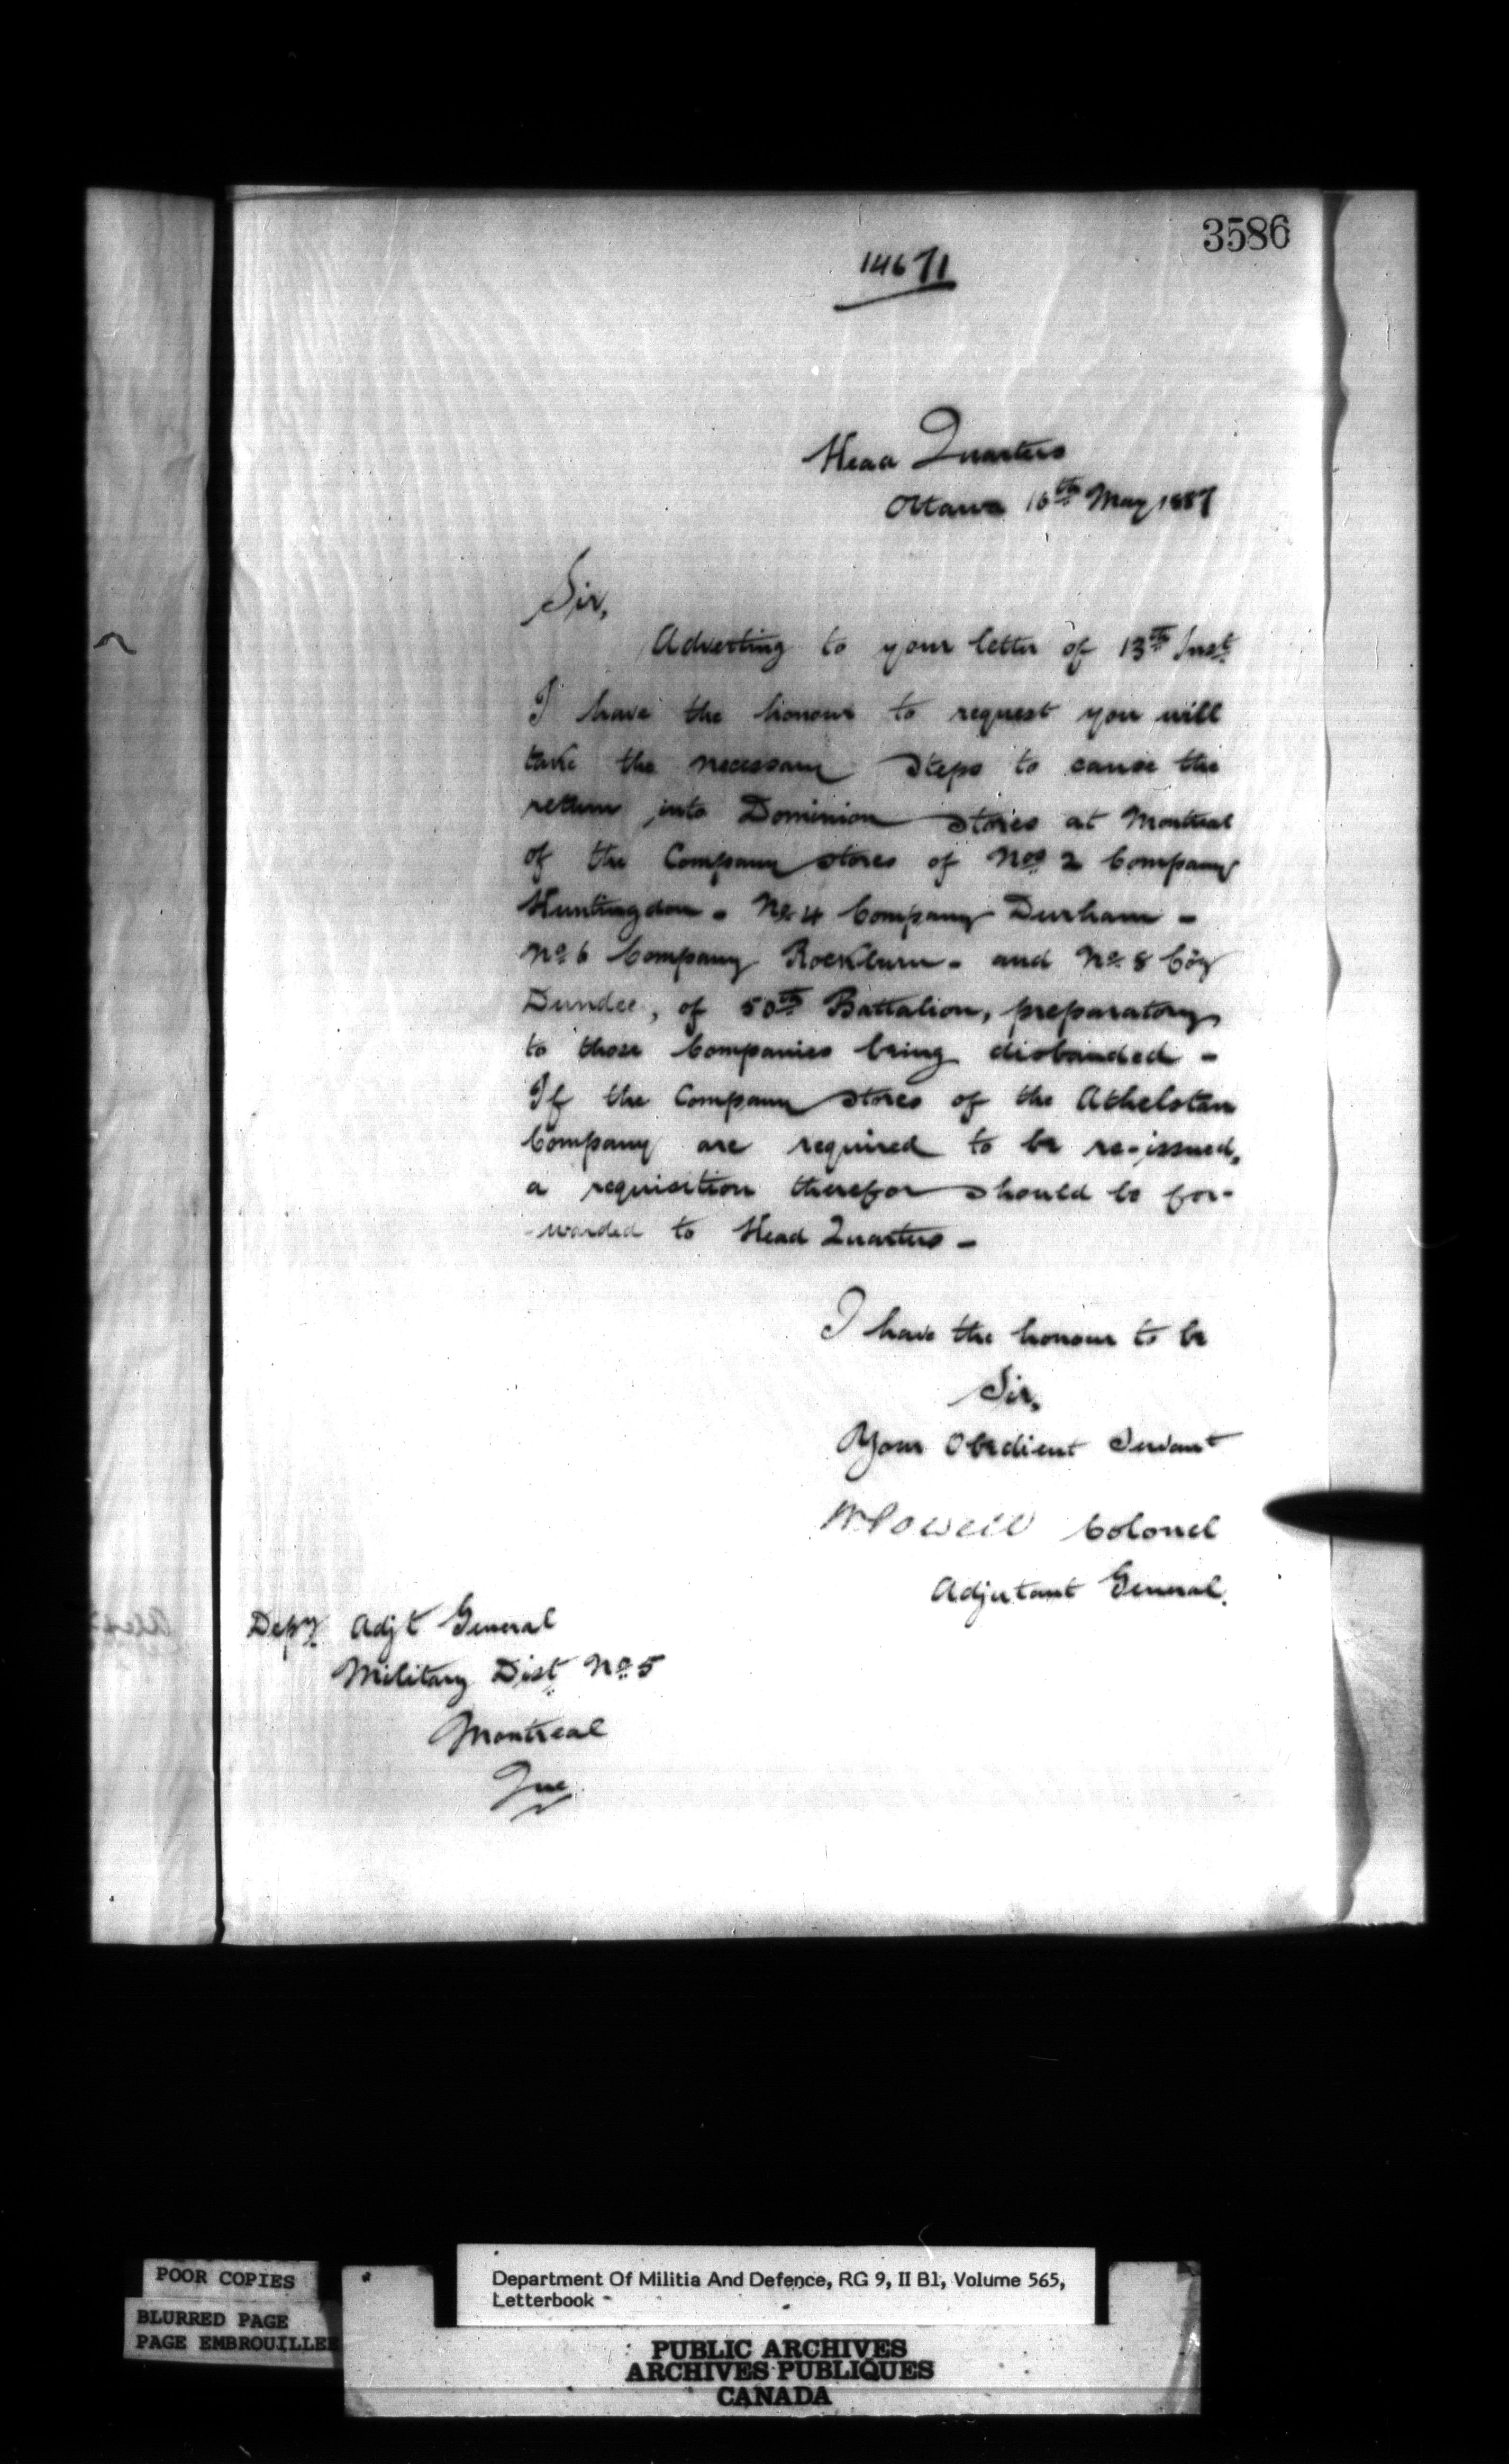 3586
14671
Head Quarters
Ottawa 16th May 1887
Sir,
Adverting to your letter of 13th Inst
I have the honour to request you will
take the necessary steps to cause the
return into Dominion Stores at Montreal
of the Company stores of Nos 2 Company
Huntingdon - No 4 Company Durham -
No 6 Company Rockburn - and No 8 Coy
Dundee, of 50th Battalion, preparatory
to those Companies being disbanded -
If the Company stores of the Athelstan
Company are required to be re-issued,
a requisition therefor should be for-
-warded to Head Quarters -
I have the honour to be
Sir,
Your Obedient Servant
W Powell Colonel
Adjutant General.
Depy Adjt General
Military Dist No 5
Montreal
Que
POOR COPIES
BLURRED PAGE
PAGE EMBROUILLEE
Department Of Militia And Defence, RG 9, II B1, Volume 565,
Letterbook -
PUBLIC ARCHIVES
ARCHIVES PUBLIQUES
CANADA